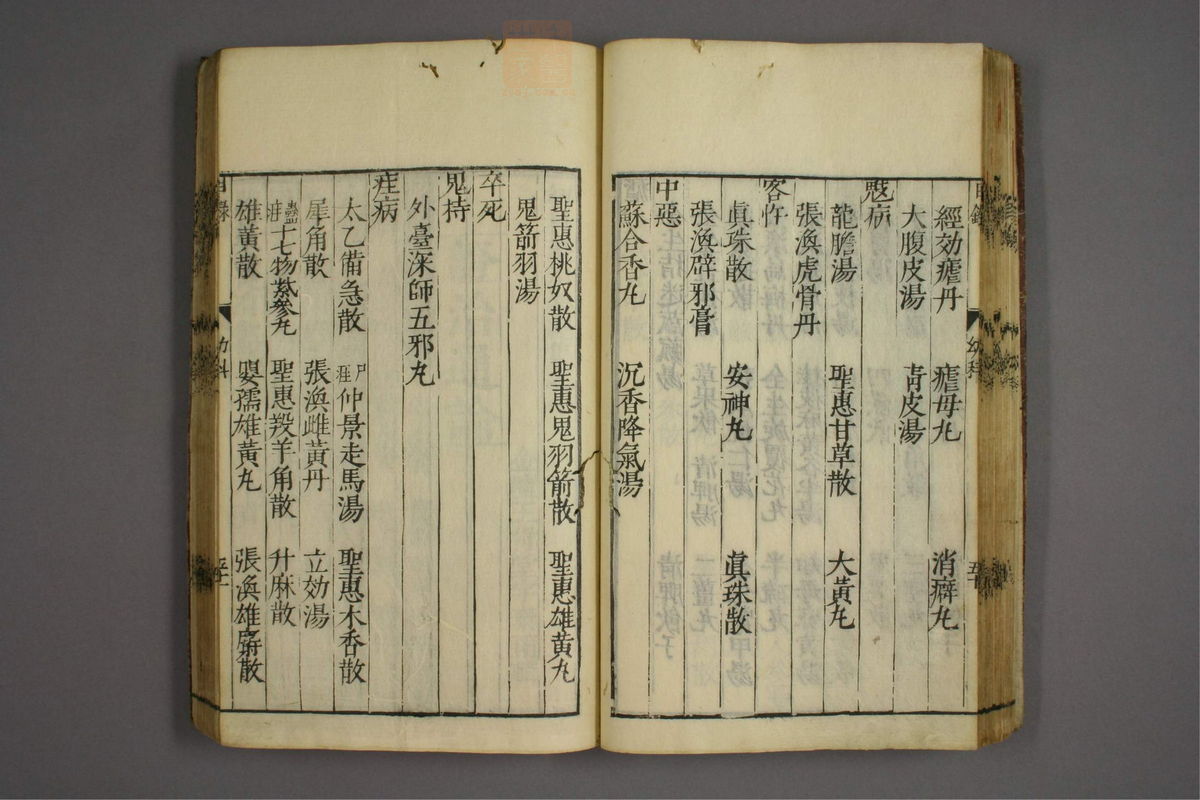 經効瘧丹 瘧母丸 消癖丸
大腹皮湯 靑皮湯
魃病
龍膽湯 聖惠甘草散 大黃丸
張渙虎骨丹
客忤
眞珠散 安神丸 眞珠散
張渙辟邪膏
中惡
蘇合香丸 沉香降氣湯
聖惠桃奴散 聖惠鬼羽箭散 聖惠雄黃丸
鬼箭羽湯
卒死
鬼持
外臺深師五邪丸
疰病
太乙備急散 尸疰仲景走馬湯 聖惠木香散
犀角散 張渙雌黃丹 立効湯
蠱疰十七物紫參丸 聖惠羖羊角散 升麻散
雄黃散 嬰孺雄黃丸 張渙雄麝散
目錄 幼科